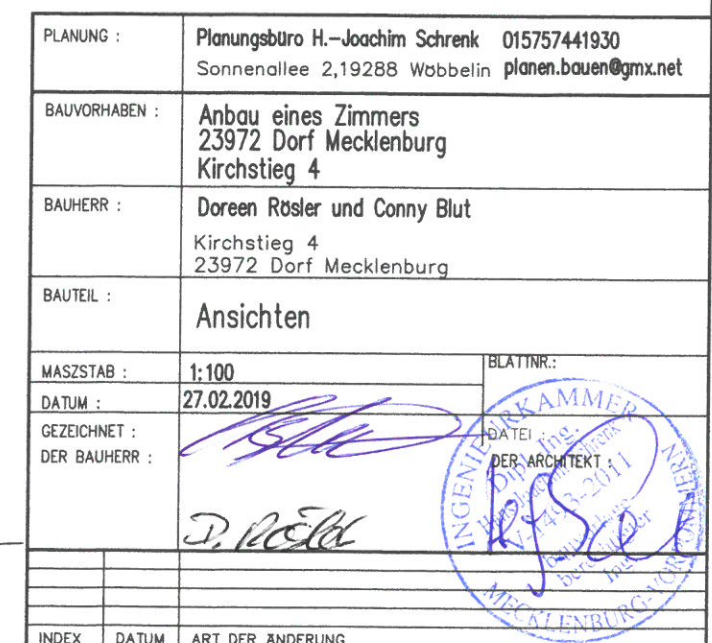 PLANUNG :
Planungsbüro H.-Joachim Schrenk 015757441930
Sonnenallee 2,19288 Wöbbelin planen.bauen@gmx.net
BAUVORHABEN :
Anbau eines Zimmers
23972 Dorf Mecklenburg
Kirchstieg 4
BAUHERR :
Doreen Rösler und Conny Blut
Kirchstieg 4
23972 Dorf Mecklenburg
BAUTEIL :
Ansichten
MASZSTAB :
1:100
BLATTNR.:
DATUM :
27.02.2019
GEZEICHNET :
DATEI :
DER BAUHERR :
DER ARCHITEKT :
INGENIEURKAMMER
MECKLENBURG-VORPOMMERN
Dipl. Ing.
INDEX DATUM ART DER ÄNDERUNG